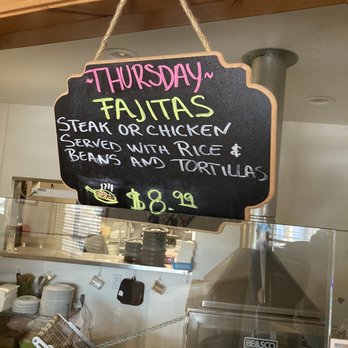 ~THURSDAY~
FAJITAS
STEAK OR CHICKEN
SERVED WITH RICE &
BEANS AND TORTILLAS
$8.99
BE&SCO